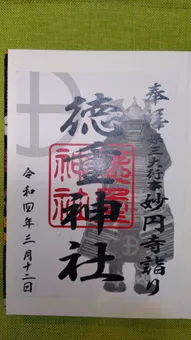 奉拝 三大行事 妙円寺詣り
徳重神社
令和四年三月十二日